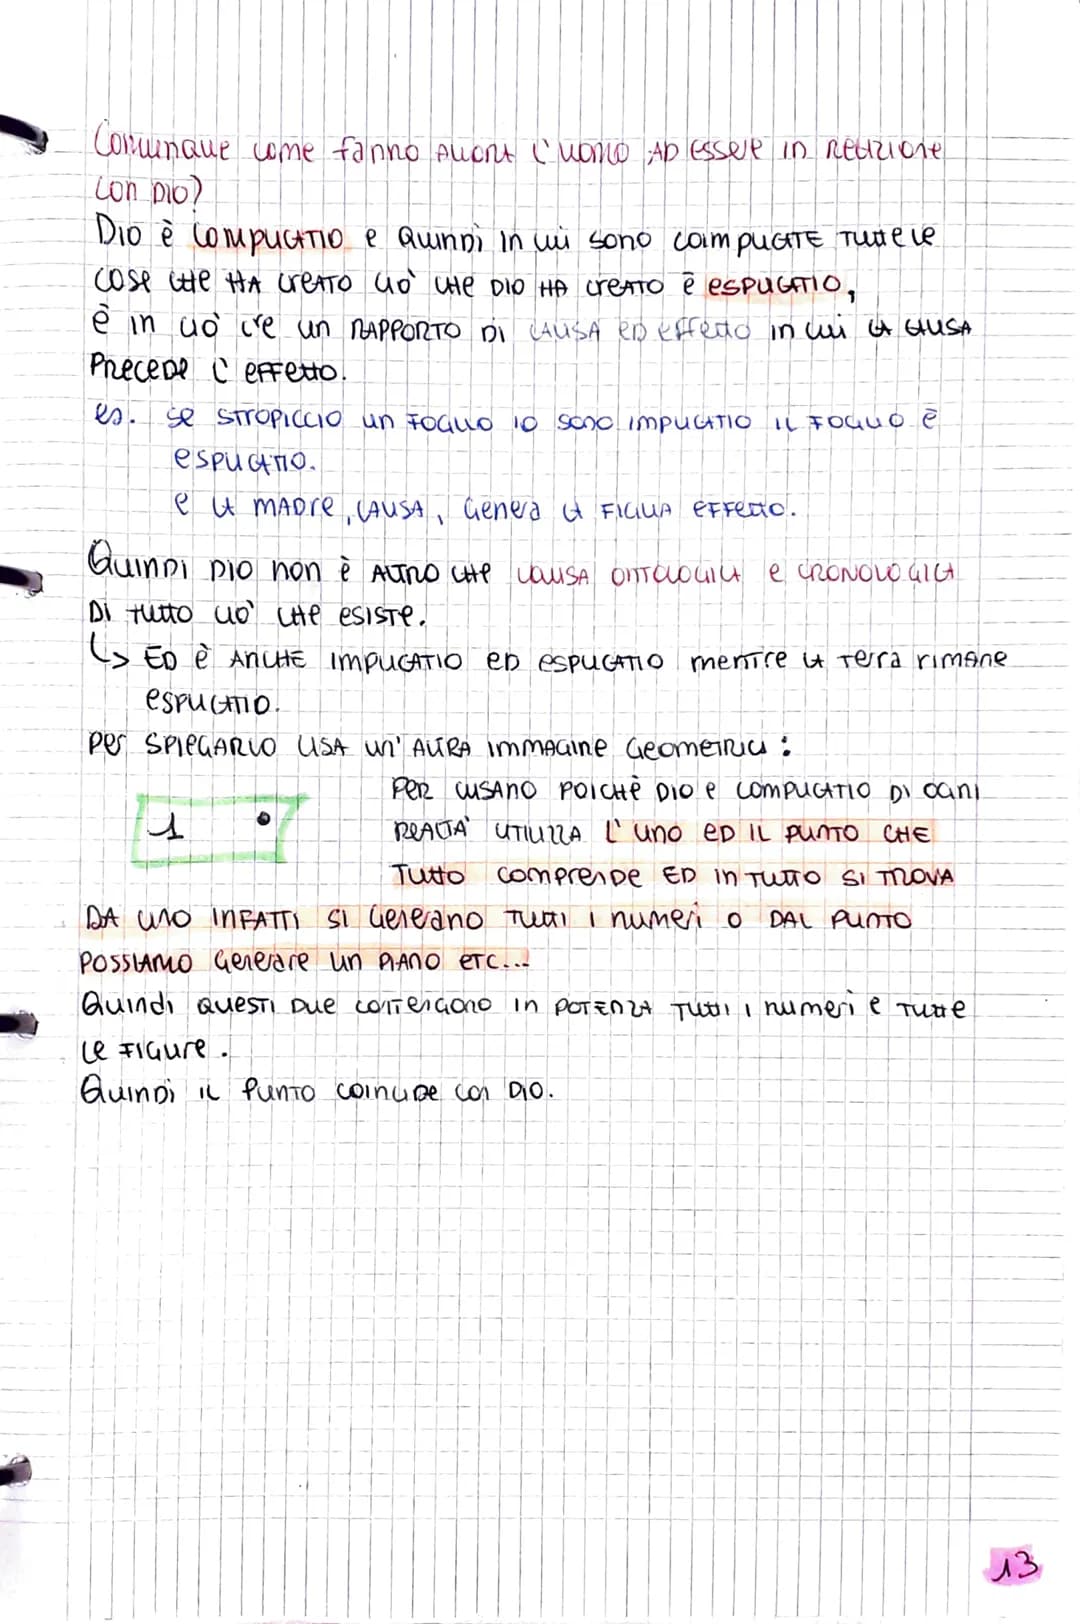 Comunque come fanno allora l'uomo ad essere in relazione
con Dio?
Dio è complicatio e quindi in cui sono coimplicate tutte le
cose che ha creato ciò che Dio ha creato è esplicatio,
è in ciò c'e un rapporto di causa ed effetto in cui la causa
precede l'effetto.
es. se stropiccio un foglio io sono implicatio il foglio è
esplicatio.
e la madre, causa, genera la figlia effetto.
Quindi Dio non è altro che causa ontologica e cronologica
di tutto ciò che esiste.
↳ ed è anche implicatio ed esplicatio mentre la terra rimane
esplicatio.
per spiegarlo usa un'altra immagine geometrica:
1 •
Per Cusano poichè Dio e complicatio di ogni
realtà utilizza l'uno ed il punto che
tutto comprende ed in tutto si trova
da uno infatti si generano tutti i numeri o dal punto
possiamo generare un piano etc...
Quindi questi due contengono in potenza tutti i numeri e tutte
le figure.
Quindi il punto coincide con Dio.
13